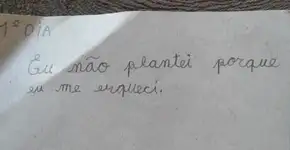 1º DIA
Eu não plantei porque
eu me esqueci.